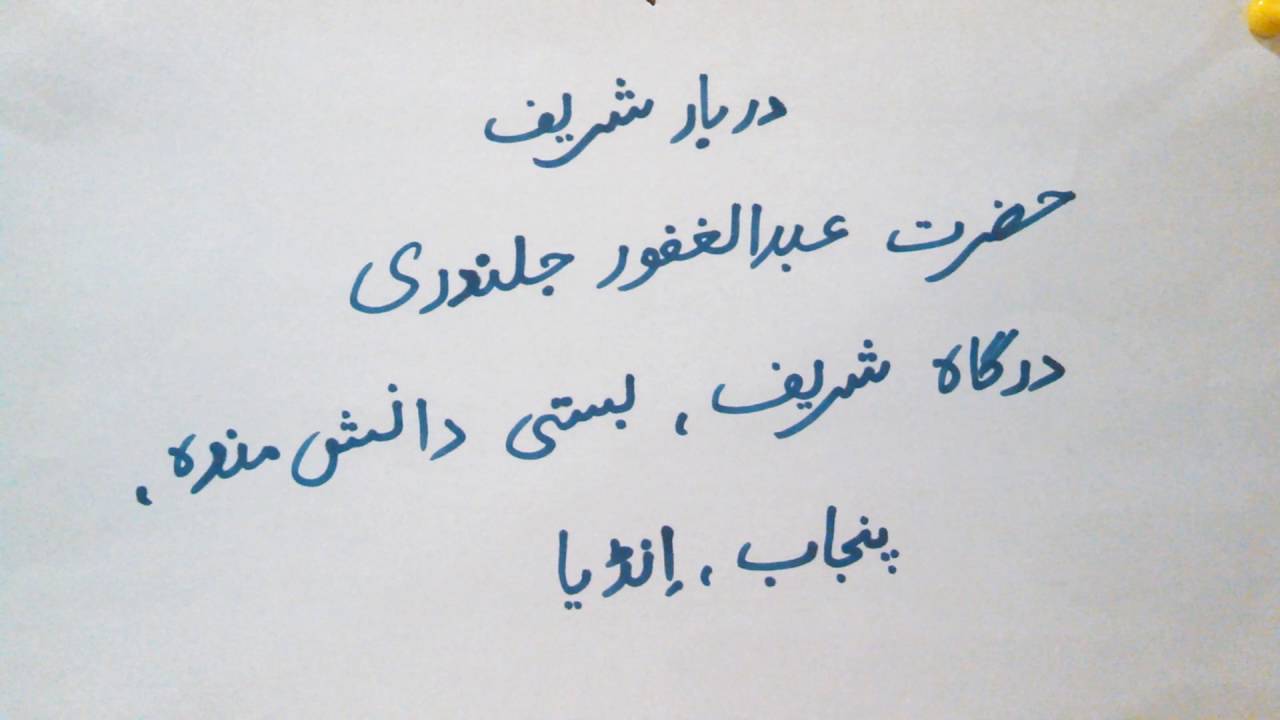 دربار شریف
حضرت عبدالغفور جلندری
درگاہ شریف، بستی دانش مندہ،
پنجاب، اِنڈیا